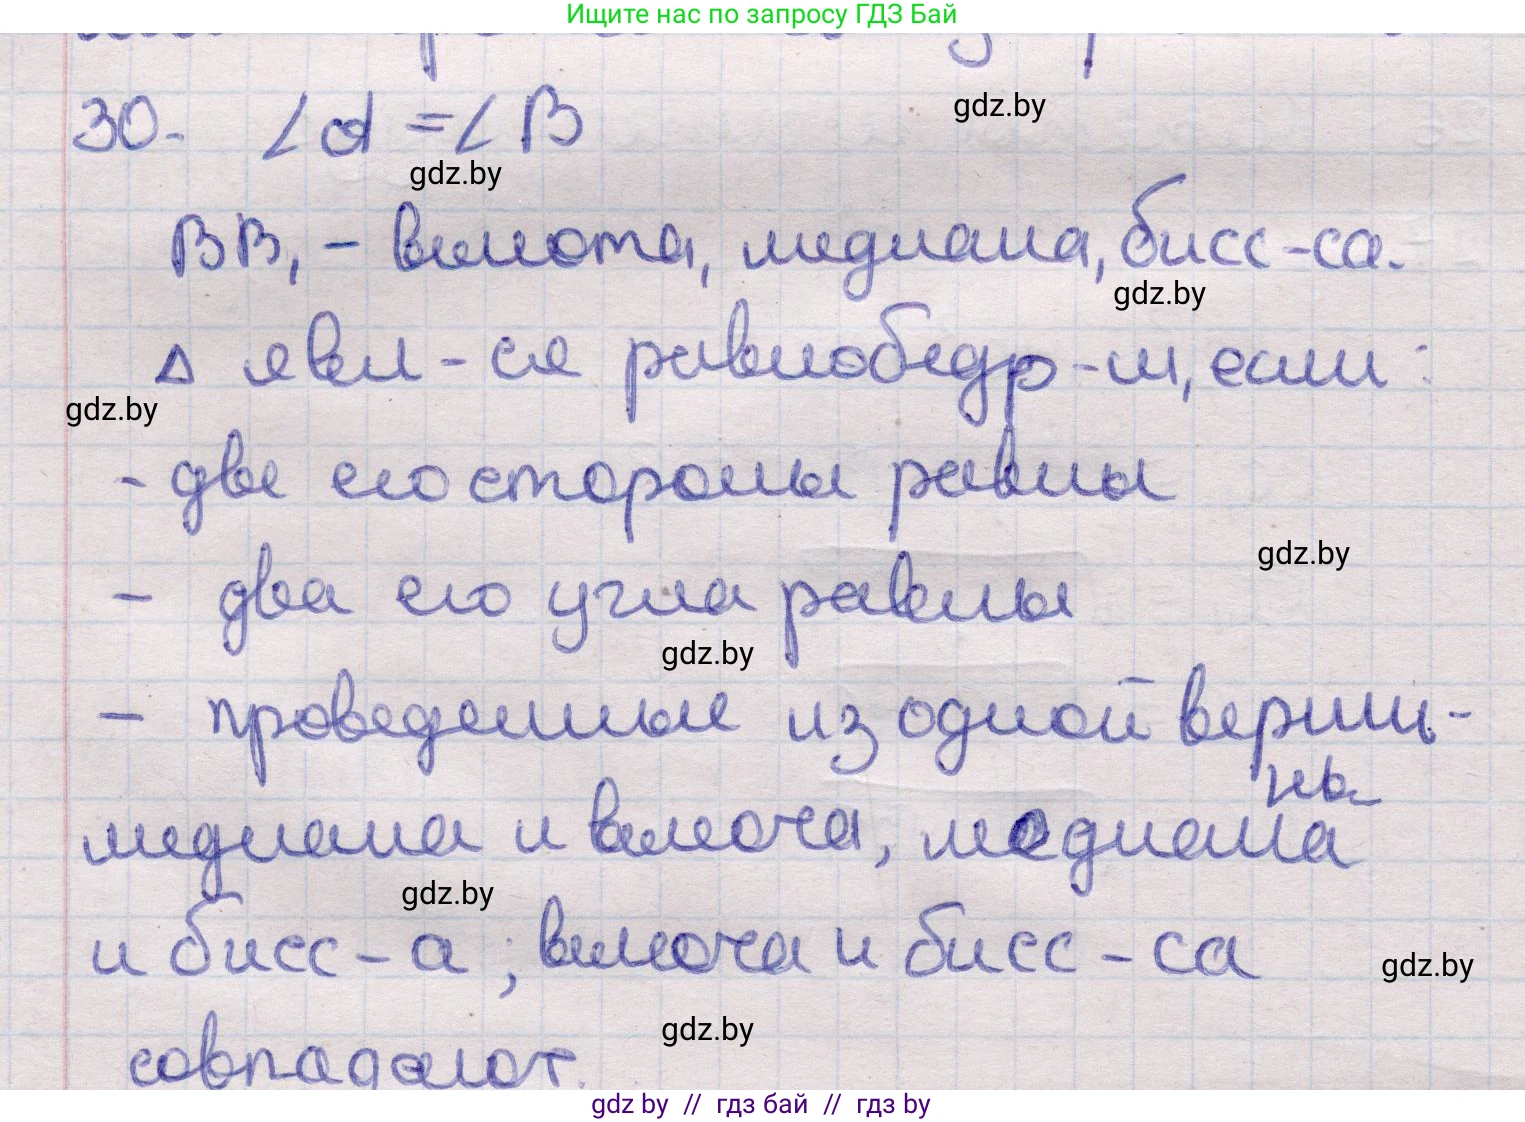 Ищите нас по запросу ГДЗ Бай
30. ∠α = ∠B
gdz.by
gdz.by
BB₁ – высота, медиана, бисс-са.
gdz.by
Δ явл-ся равнобедр-м, если:
gdz.by
- две его стороны равны
gdz.by
- два его угла равны
gdz.by
- проведенные из одной верши-
ны
медиана и высоча, медиана
gdz.by
и бисс-а; высоча и бисс-са
gdz.by
gdz.by
совпадают.
gdz by // гдз бай // гдз by